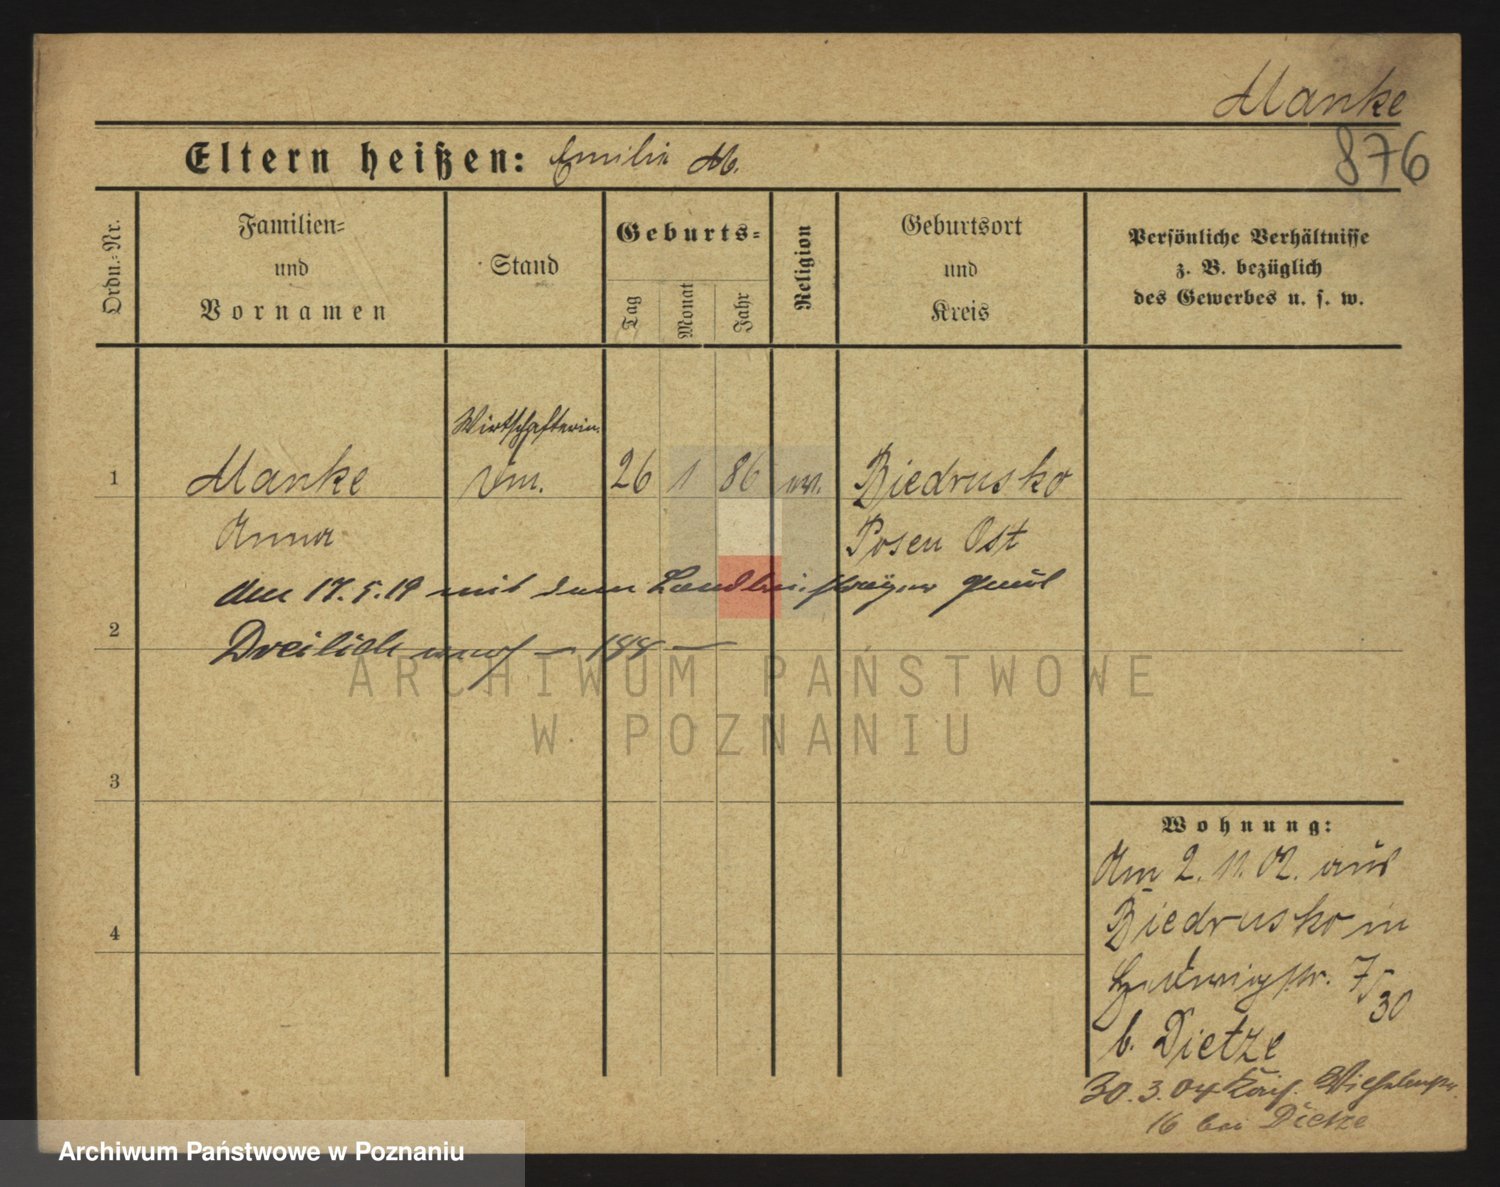 Manke
876
Eltern heißen: Emilie M.
Ordn.=Nr.
Familien=
und
Vornamen
Stand
Geburts=
Tag
Monat
Jahr
Religion
Geburtsort
und
Kreis
Persönliche Verhältnisse
z. B. bezüglich
des Gewerbes u. s. w.
Wirtschafterin.
1 Manke 26 1 86 Biedrusko
Anna Posen Ost
am 17.5.19 mit dem Paul
2 Dreilich
3
4
Wohnung:
Am 2. 11. 02. aus
Biedrusko in
Hedwigstr. 7/30
b. Dietze
30.3.04 Kais. Wilhelmstr.
16 bei Dietze
ARCHIWUM PAŃSTWOWE
W POZNANIU
Archiwum Państwowe w Poznaniu